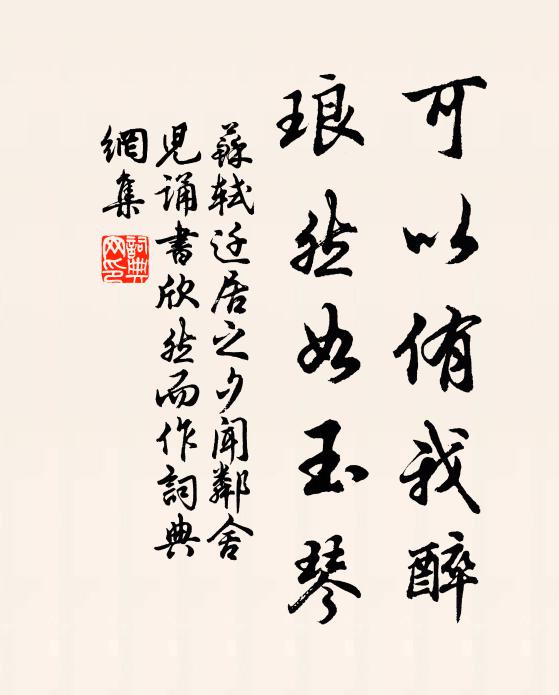 可以侑我醉
琅然如玉琴
蘇軾迁居之夕闻鄰舍
児诵書欣然而作詞典
網集
詞典
网印